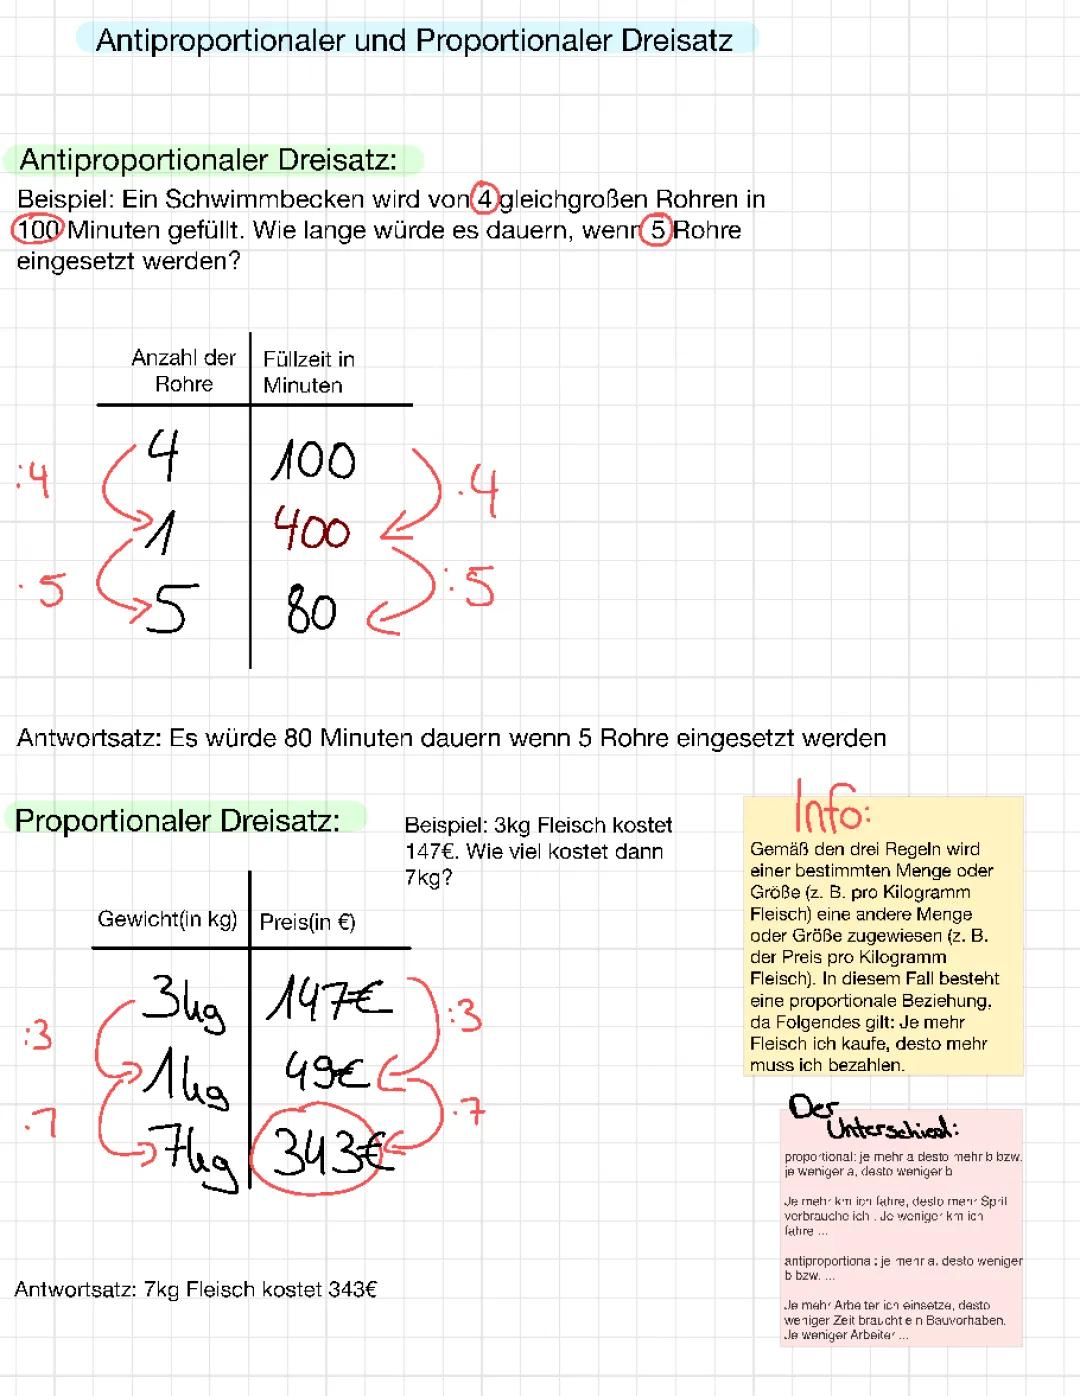 Antiproportionaler und Proportionaler Dreisatz
Antiproportionaler Dreisatz:
Beispiel: Ein Schwimmbecken wird von 4 gleichgroßen Rohren in
100 Minuten gefüllt. Wie lange würde es dauern, wenn 5 Rohre
eingesetzt werden?
Anzahl der Rohre
Füllzeit in Minuten
:4 4 100 ·4
1 400
·5 5 80 :5
Antwortsatz: Es würde 80 Minuten dauern wenn 5 Rohre eingesetzt werden
Proportionaler Dreisatz:
Beispiel: 3kg Fleisch kostet
147€. Wie viel kostet dann
7kg?
Gewicht(in kg) Preis(in €)
:3 3kg 147€ :3
1kg 49€
·7 7kg 343€ ·7
Antwortsatz: 7kg Fleisch kostet 343€
Info:
Gemäß den drei Regeln wird
einer bestimmten Menge oder
Größe (z. B. pro Kilogramm
Fleisch) eine andere Menge
oder Größe zugewiesen (z. B.
der Preis pro Kilogramm
Fleisch). In diesem Fall besteht
eine proportionale Beziehung,
da Folgendes gilt: Je mehr
Fleisch ich kaufe, desto mehr
muss ich bezahlen.
Der
Unterschied:
proportional: je mehr a desto mehr b bzw.
je weniger a, desto weniger b
Je mehr km ich fahre, desto mehr Sprit
verbrauche ich . Je weniger km ich
fahre ...
antiproportional: je mehr a, desto weniger
b bzw. ...
Je mehr Arbeiter ich einsetze, desto
weniger Zeit braucht ein Bauvorhaben.
Je weniger Arbeiter ...